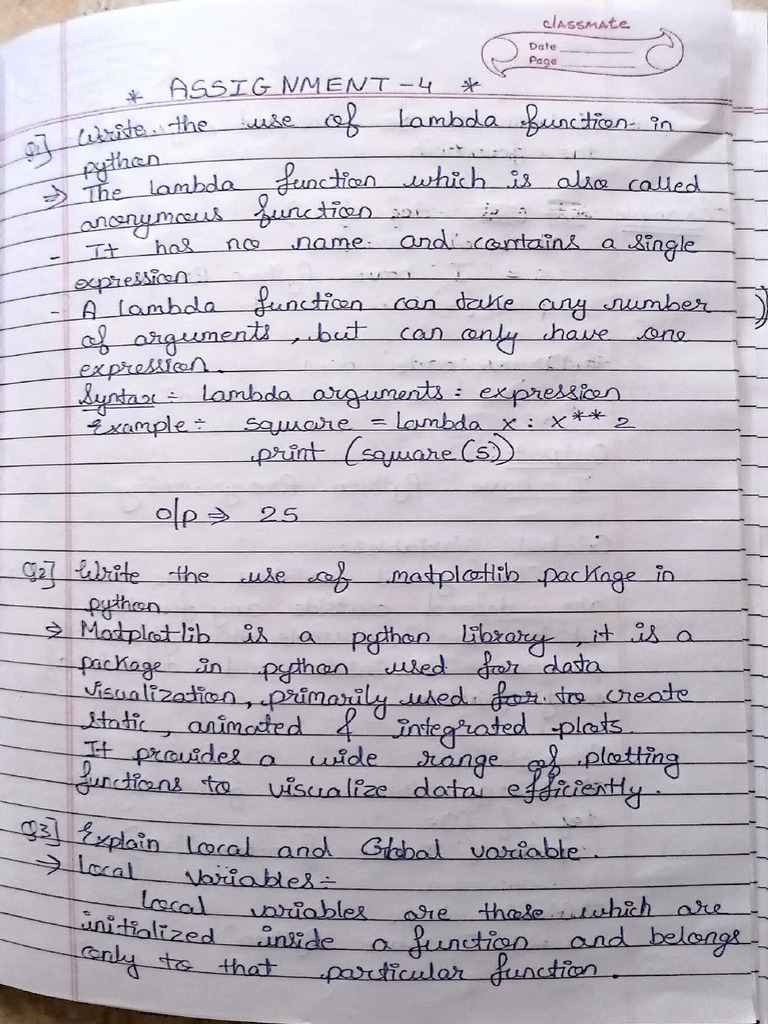 classmate
Date
Page
* ASSIGNMENT-4 *
Q1] Write the use of Lambda function in
python
⇒ The lambda function which is also called
anonymous function
- It has no name and contains a single
expression
- A lambda function can take any number
of arguments, but can only have one
expression.
Syntax :- Lambda arguments : expression
Example :- square = lambda x : x ** 2
print (square(5))
o/p ⇒ 25
Q2] Write the use of matplotlib package in
python.
⇒ Matplotlib is a python library, it is a
package in python used for data
visualization, primarily used for to create
static, animated & integrated plots.
It provides a wide range of plotting
functions to visualize data efficiently.
Q3] Explain Local and Global variable.
⇒ Local Variables :-
Local variables are those which are
initialized inside a function and belongs
only to that particular function.